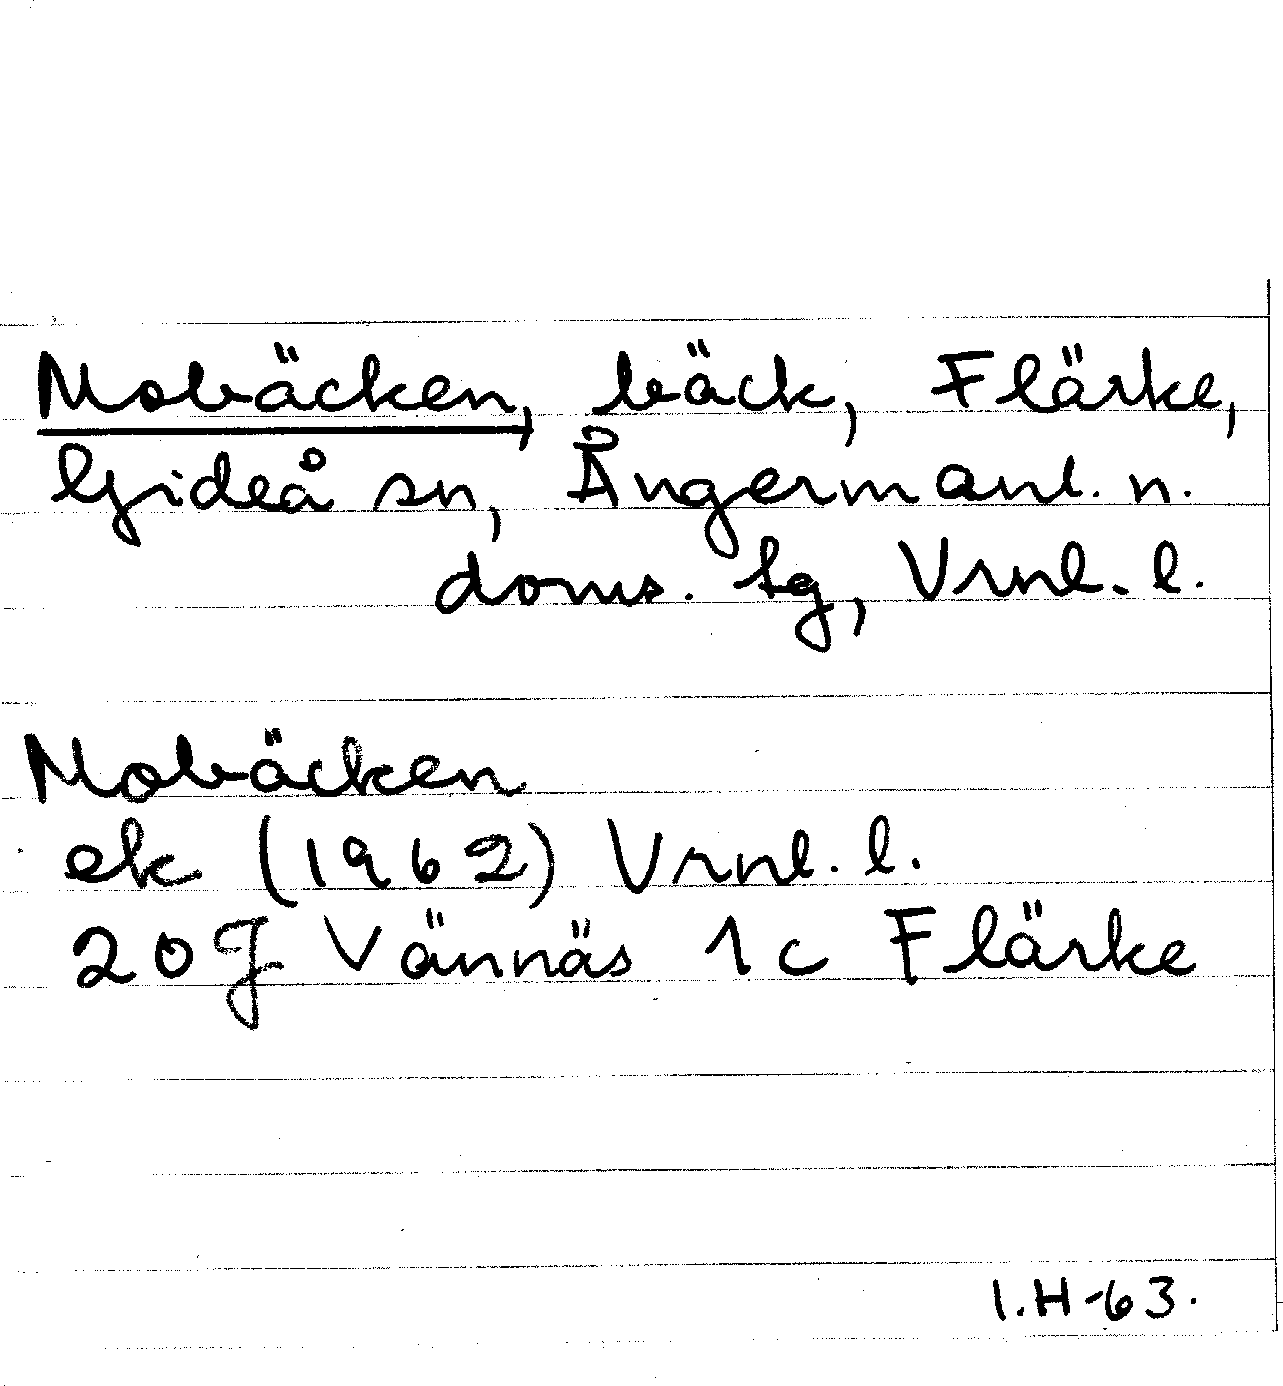 Mobäcken, bäck, Flärke,
Gideå sn, Ångermanl. n.
doms. tg, Vrnl. l.
Mobäcken
ek (1962) Vrnl. l.
20J Vännäs 1c Flärke
I.H-63.